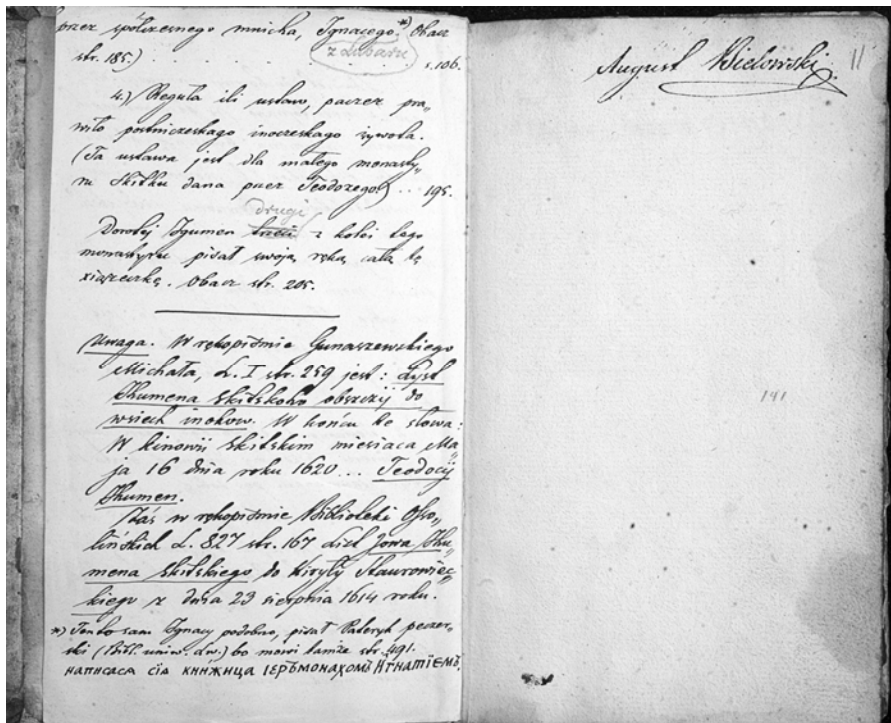 przez spółczesnego mnicha, Ignacego.*) Obacz
z Lubaru
str. 185.) . . . . . s. 106.
4.) Reguła ili ustaw, paczez pra„
wiło postniczeskago inoczeskago żywota.
(Ta ustawa jest dla małego monasty„
ru Skitku dana przez Teodozego) .. 195.
drugi
Dorotej Igumen trzeci z kolei tego
monastyru pisał swoją ręką całą tę
xiążeczkę. Obacz str. 205.
Uwaga. W rękopiśmie Gunaszewskiego
Michała, L. I str. 259 jest: Lyst
Ihumena skitskoho obszczij do
wsiech inokow. W końcu te słowa:
W kinowii skitskim miesiaca Ma„
ja 16 dnia roku 1620 ... Teodocij
Ihumen.
Zaś w rękopiśmie Biblioteki Osso„
lińskich L. 827 str. 167 list Jowa Ihu„
mena skitskiego do Kiryły Staurowiec„
kiego z dnia 23 sierpnia 1614 roku.
*) Tenże sam Ignacy podobno, pisał Pateryk peczer„
ski (Bibl. uniw. lw.) bo mowi tamże str. 491.
написаса сїа книжица їеръмонахомъ Игнатїемъ.
August Bielowski
11
141